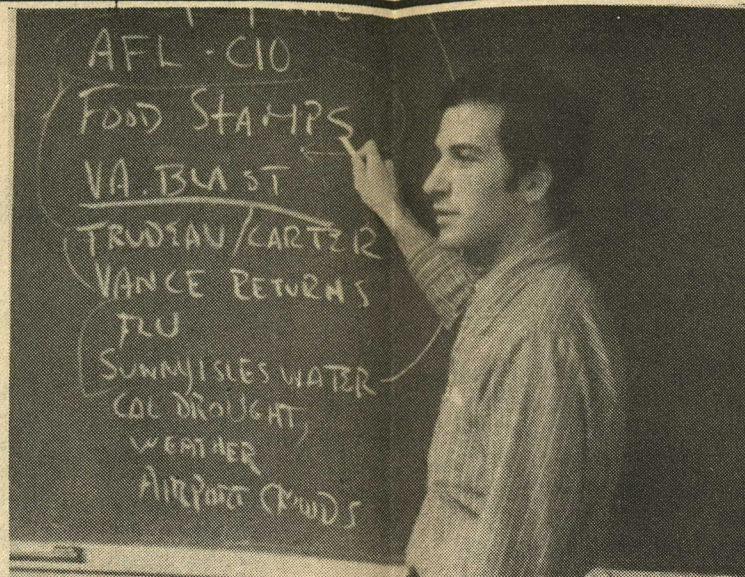 AFL-CIO
FOOD STAMPS
VA. BLAST
TRUDEAU/CARTER
VANCE RETURNS
FLU
SUNNY ISLES WATER
CAL DROUGHT,
WEATHER
AIRPORT CROWDS